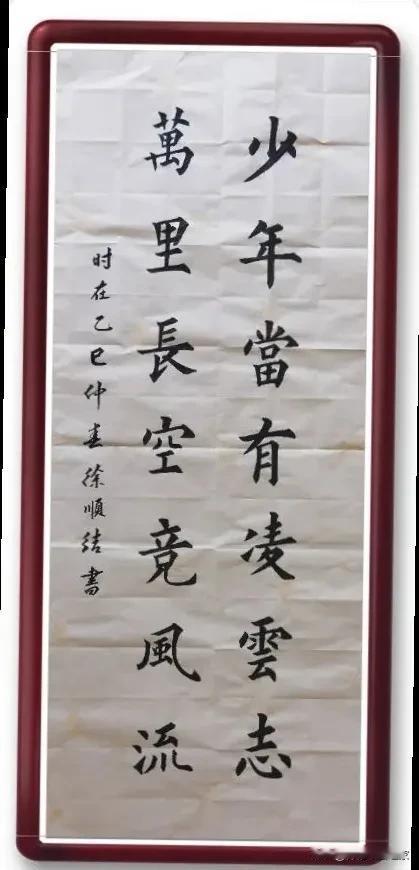 少年當有凌雲志
萬里長空竞風流
时在乙巳仲春徐順結書